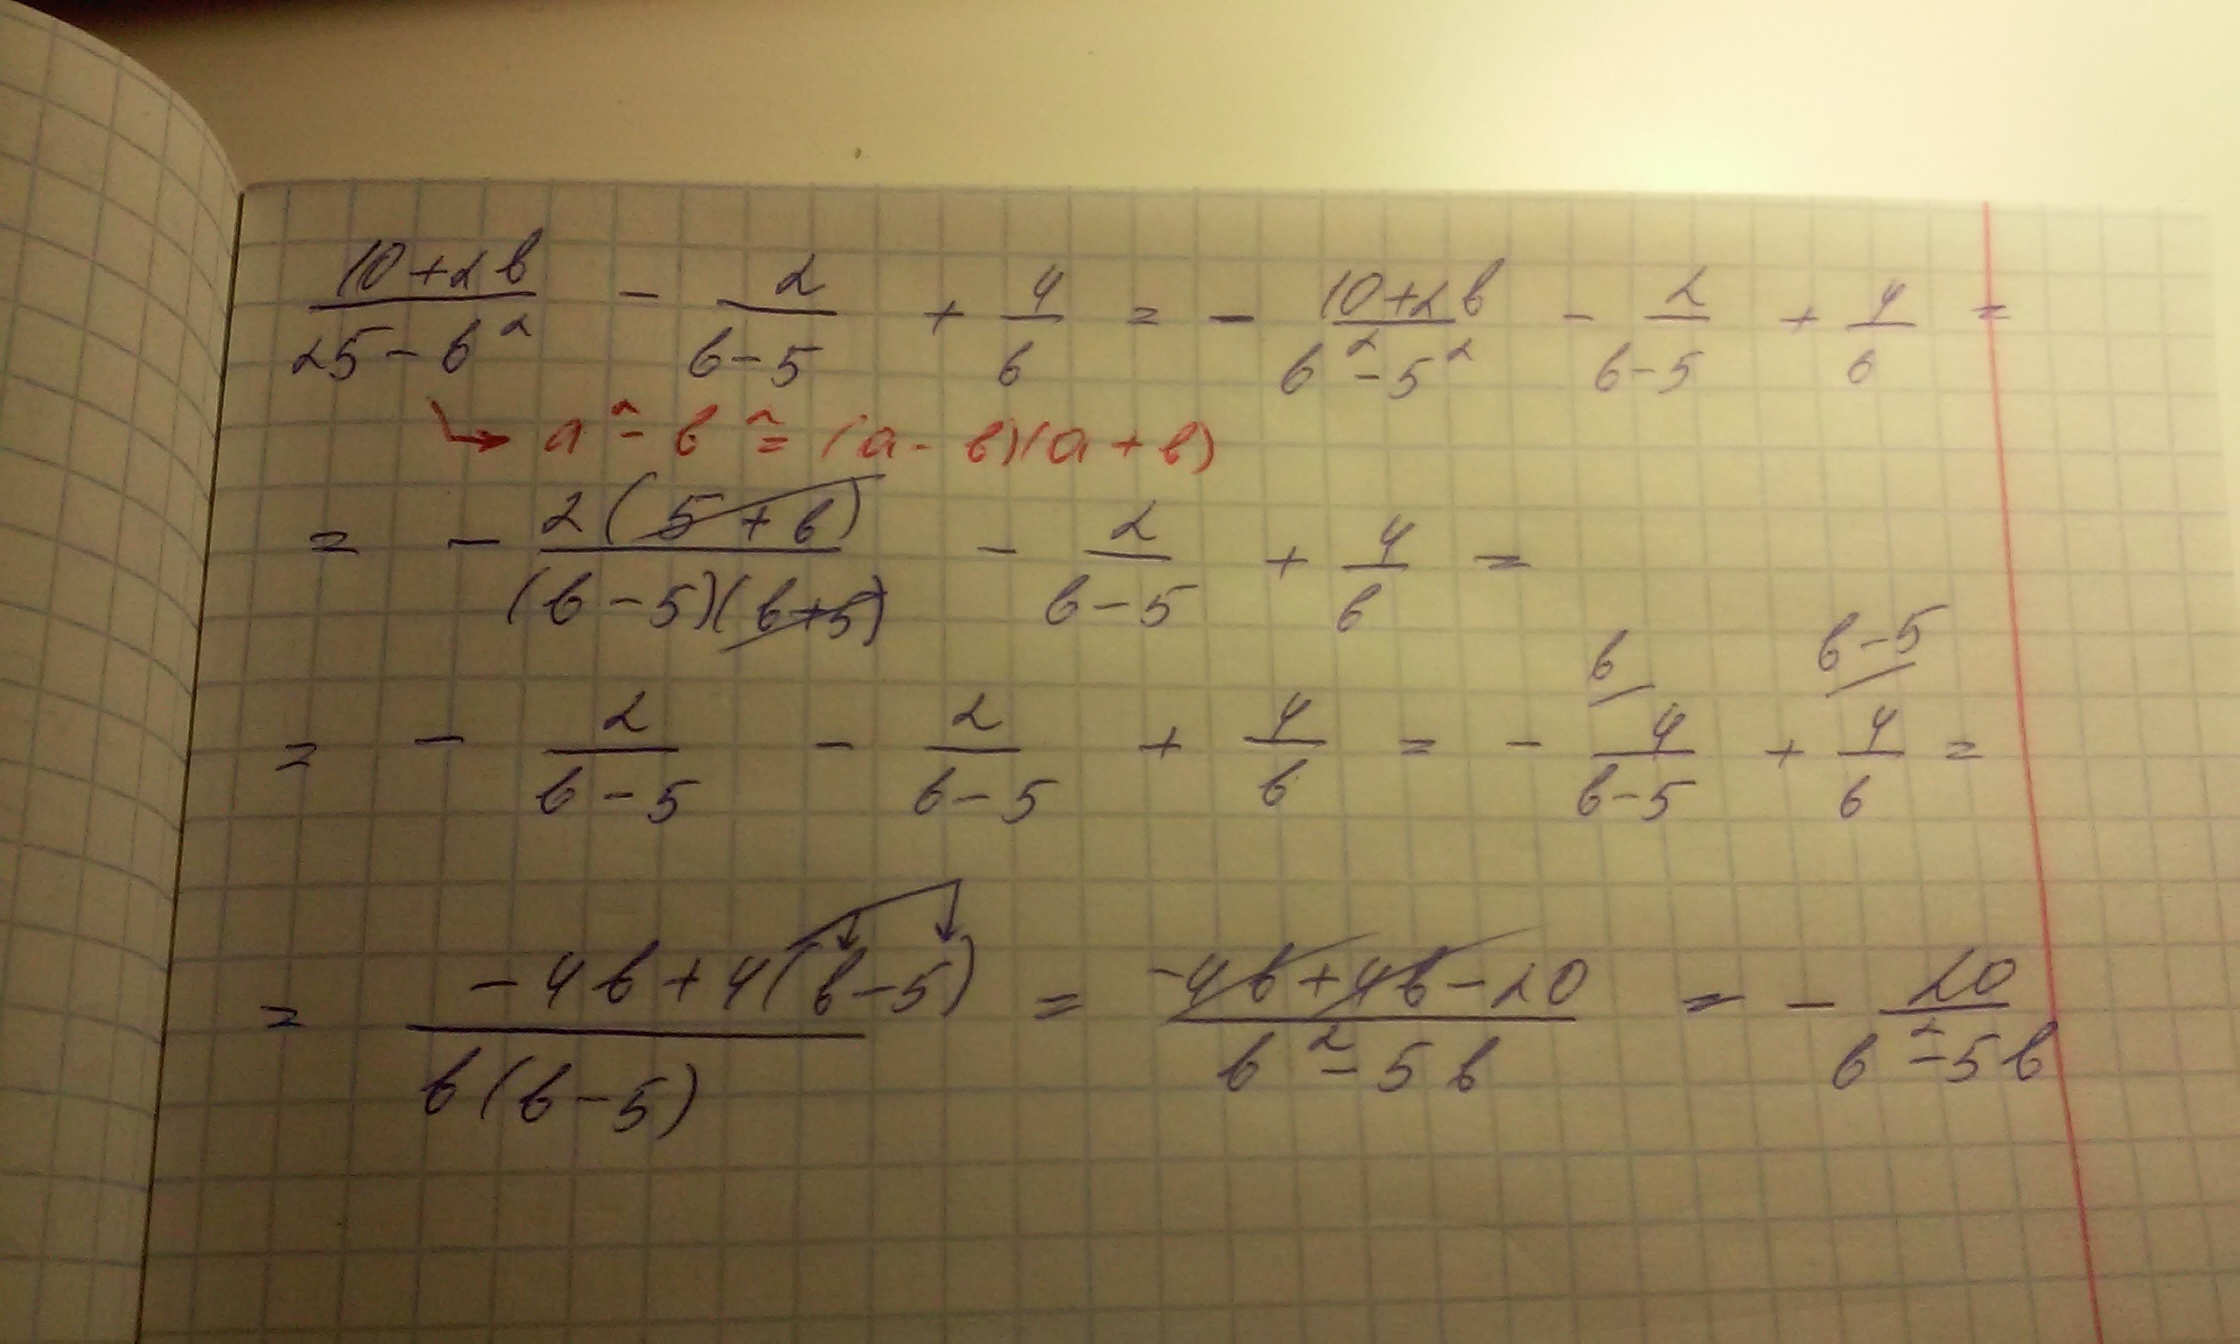 \frac{10+2b}{25-b^2} - \frac{2}{b-5} + \frac{4}{b} = - \frac{10+2b}{b^2-5^2} - \frac{2}{b-5} + \frac{4}{b} =
a^2 - b^2 = (a-b)(a+b)
= - \frac{2(5+b)}{(b-5)(b+5)} - \frac{2}{b-5} + \frac{4}{b} =
b b-5
= - \frac{2}{b-5} - \frac{2}{b-5} + \frac{4}{b} = - \frac{4}{b-5} + \frac{4}{b} =
= \frac{-4b+4(b-5)}{b(b-5)} = \frac{-4b+4b-20}{b^2-5b} = - \frac{20}{b^2-5b}